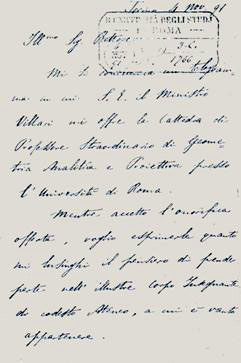 4 Nov. 91
R. UNIVERSITÀ DEGLI STUDI
DI ROMA
1766
Ill.mo Sig. Rettore
Mi si comunica un telegram-
ma in cui S. E. il Ministro
Villari mi offre la Cattedra di
Professore Straordinario di Geome-
tria Analitica e Proiettiva presso
l'Università di Roma.
Mentre accetto l'onorifica
offerta, voglio esprimerle quanto
mi lusinghi il pensiero di prender
parte nell'illustre Corpo Insegnante
di codesto Ateneo, a cui è vanto
appartenere.